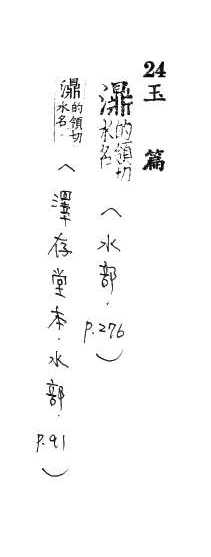 24玉篇
濎的領切水名（水部．p.276）
濎的領切水名．（澤存堂本．水部．p.91）